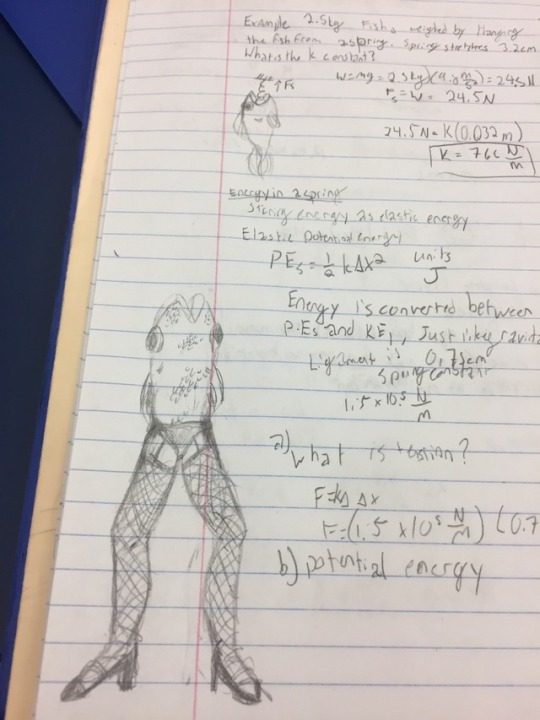 Example 2.5kg Fish, weighed by Hanging
the fish from a spring. Spring stretches 3.2cm
What is the k constant?
W=mg=2.5kg)(9.8 m/s²)=24.5N
Fs=W= 24.5N
↑Fs
24.5N=K(0.032m)
K = 766 N/m
Energy in a spring
Storing energy as elastic energy
Elastic Potential energy
PEs = 1/2 kΔx² units J
Energy is converted between
P.Es and KE, Just like
Ligament is 0.75cm
Spring constant
1.5 x10⁵ N/m
a) What is tension?
Δx
F=(1.5 x10⁵ N/m) (0.7
b) potential energy